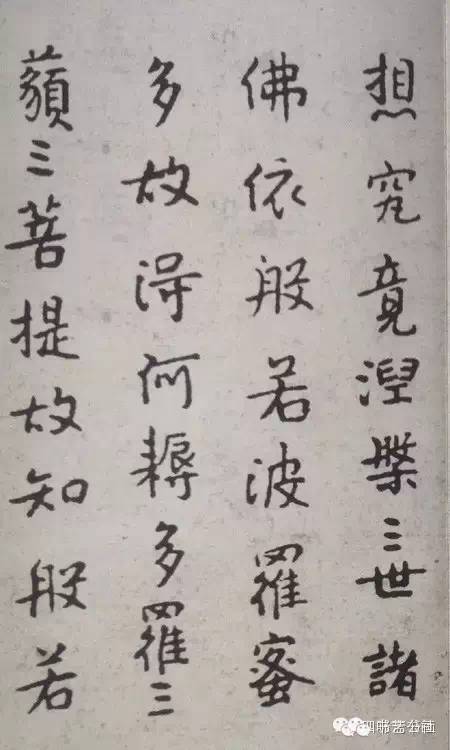 想究竟涅槃三世諸
佛依般若波羅蜜
多故得阿耨多羅三
藐三菩提故知般若